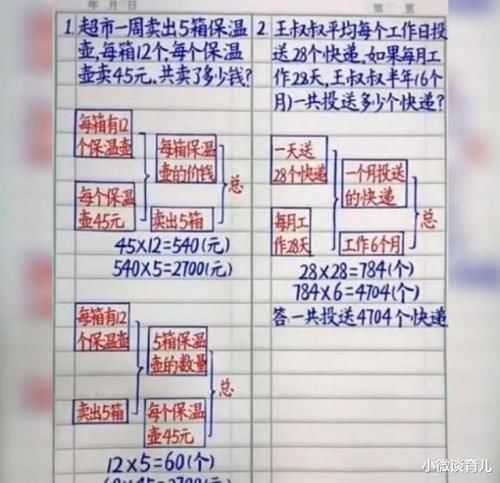 年 月 日
第 页
1. 超市一周卖出5箱保温
壶,每箱12个,每个保温
壶卖45元.共卖了多少钱?
每箱有12
个保温壶
每箱保温
壶的价钱
总
每个保温
壶45元
卖出5箱
45×12=540(元)
540×5=2700(元)
每箱有12
个保温壶
5箱保温
壶的数量
总
卖出5箱
每个保温
壶45元
12×5=60(个)
2. 王叔叔平均每个工作日投
送28个快递.如果每月工
作28天,王叔叔半年(6个
月)一共投送多少个快递?
一天送
28个快递
一个月投送
的快递
总
每月工
作28天
工作6个月
28×28=784(个)
784×6=4704(个)
答一共投送4704个快递
小微谈育儿